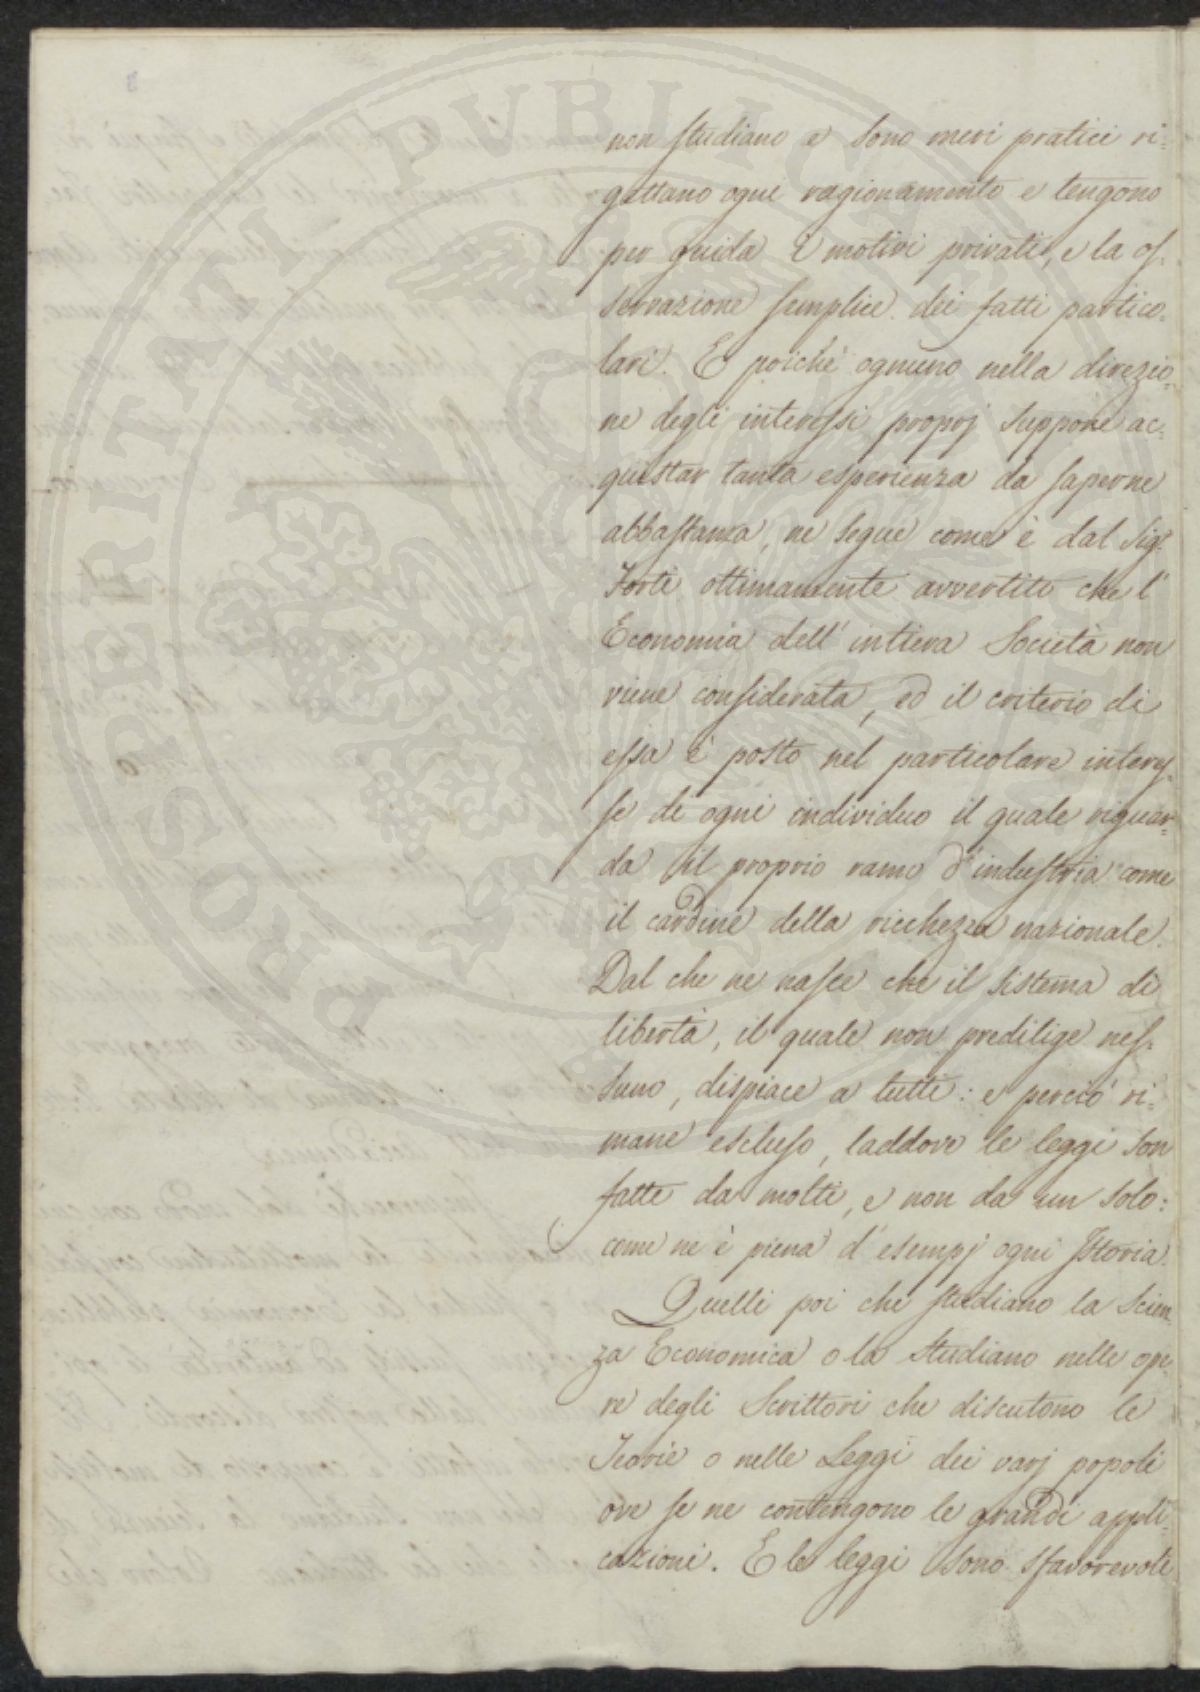 PROSPERITATI PVBLICAE
non studiano e sono meri pratici ri=
gettano ogni ragionamento e tengono
per guida i motivi privati, e la os=
servazione semplice dei fatti partico=
lari. E poichè ognuno nella direzio=
ne degli interessi proprj suppone ac=
quistar tanta esperienza da saperne
abbastanza, ne segue come è dal Sigr.
Forti ottimamente avvertito che l'
Economia dell'intiera Società non
viene considerata, ed il criterio di
essa è posto nel particolare interes=
se di ogni individuo il quale riguar=
da il proprio ramo d'industria come
il cardine della ricchezza nazionale.
Dal che ne nasce che il sistema di
libertà, il quale non predilige nes=
suno, dispiace a tutti: e perciò ri=
mane escluso, laddove le leggi son
fatte da molti, e non da un solo:
come ne è piena d'esempj ogni Istoria.
Quelli poi che studiano la Scien=
za Economica o la studiano nelle ope=
re degli Scrittori che discutono le
Teorie o nelle Leggi dei varj popoli
ove se ne contengono le grandi appli=
cazioni. E le leggi sono sfavorevoli